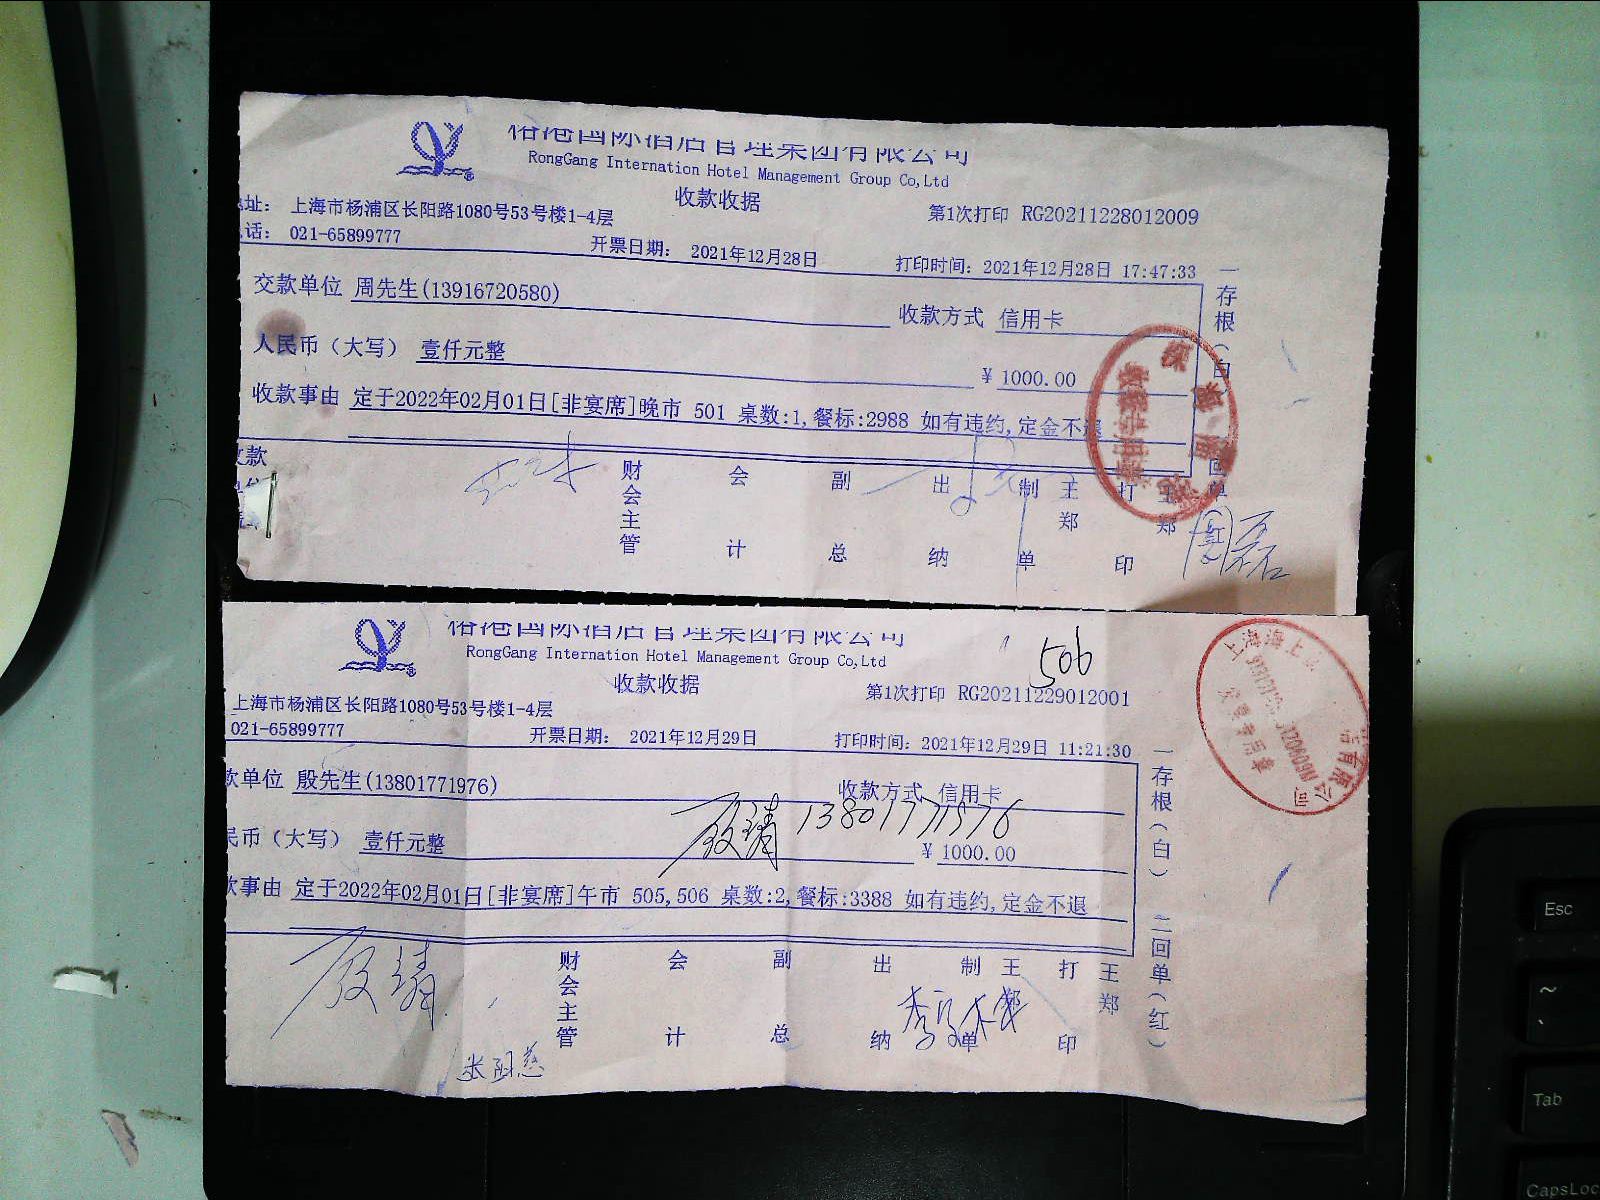 裕港国际酒店管理集团有限公司
RongGang Internation Hotel Management Group Co,Ltd
收款收据
址： 上海市杨浦区长阳路1080号53号楼1-4层
第1次打印 RG20211228012009
话： 021-65899777
开票日期： 2021年12月28日
打印时间：2021年12月28日 17:47:33
交款单位 周先生(13916720580)
收款方式 信用卡
人民币（大写） 壹仟元整
￥1000.00
收款事由 定于2022年02月01日[非宴席]晚市 501 桌数:1,餐标:2988 如有违约,定金不退
一存根（白
回单（红）
收款
财会主管 会计 副总 出纳 制单 王郑 打印 王郑
周磊
裕港国际酒店管理集团有限公司
RongGang Internation Hotel Management Group Co,Ltd
506
收款收据
第1次打印 RG20211229012001
上海市杨浦区长阳路1080号53号楼1-4层
021-65899777
开票日期： 2021年12月29日
打印时间：2021年12月29日 11:21:30
款单位 殷先生(13801771976)
收款方式 信用卡
殷靖 13801771976
民币（大写） 壹仟元整
￥1000.00
款事由 定于2022年02月01日[非宴席]午市 505,506 桌数:2,餐标:3388 如有违约,定金不退
一存根（白） 二回单（红）
财会主管 会计 副总 出纳 制单 王郑 打印 王郑
殷靖
上海海上
发票专用章
有限公司
Esc
~
Tab
CapsLoc